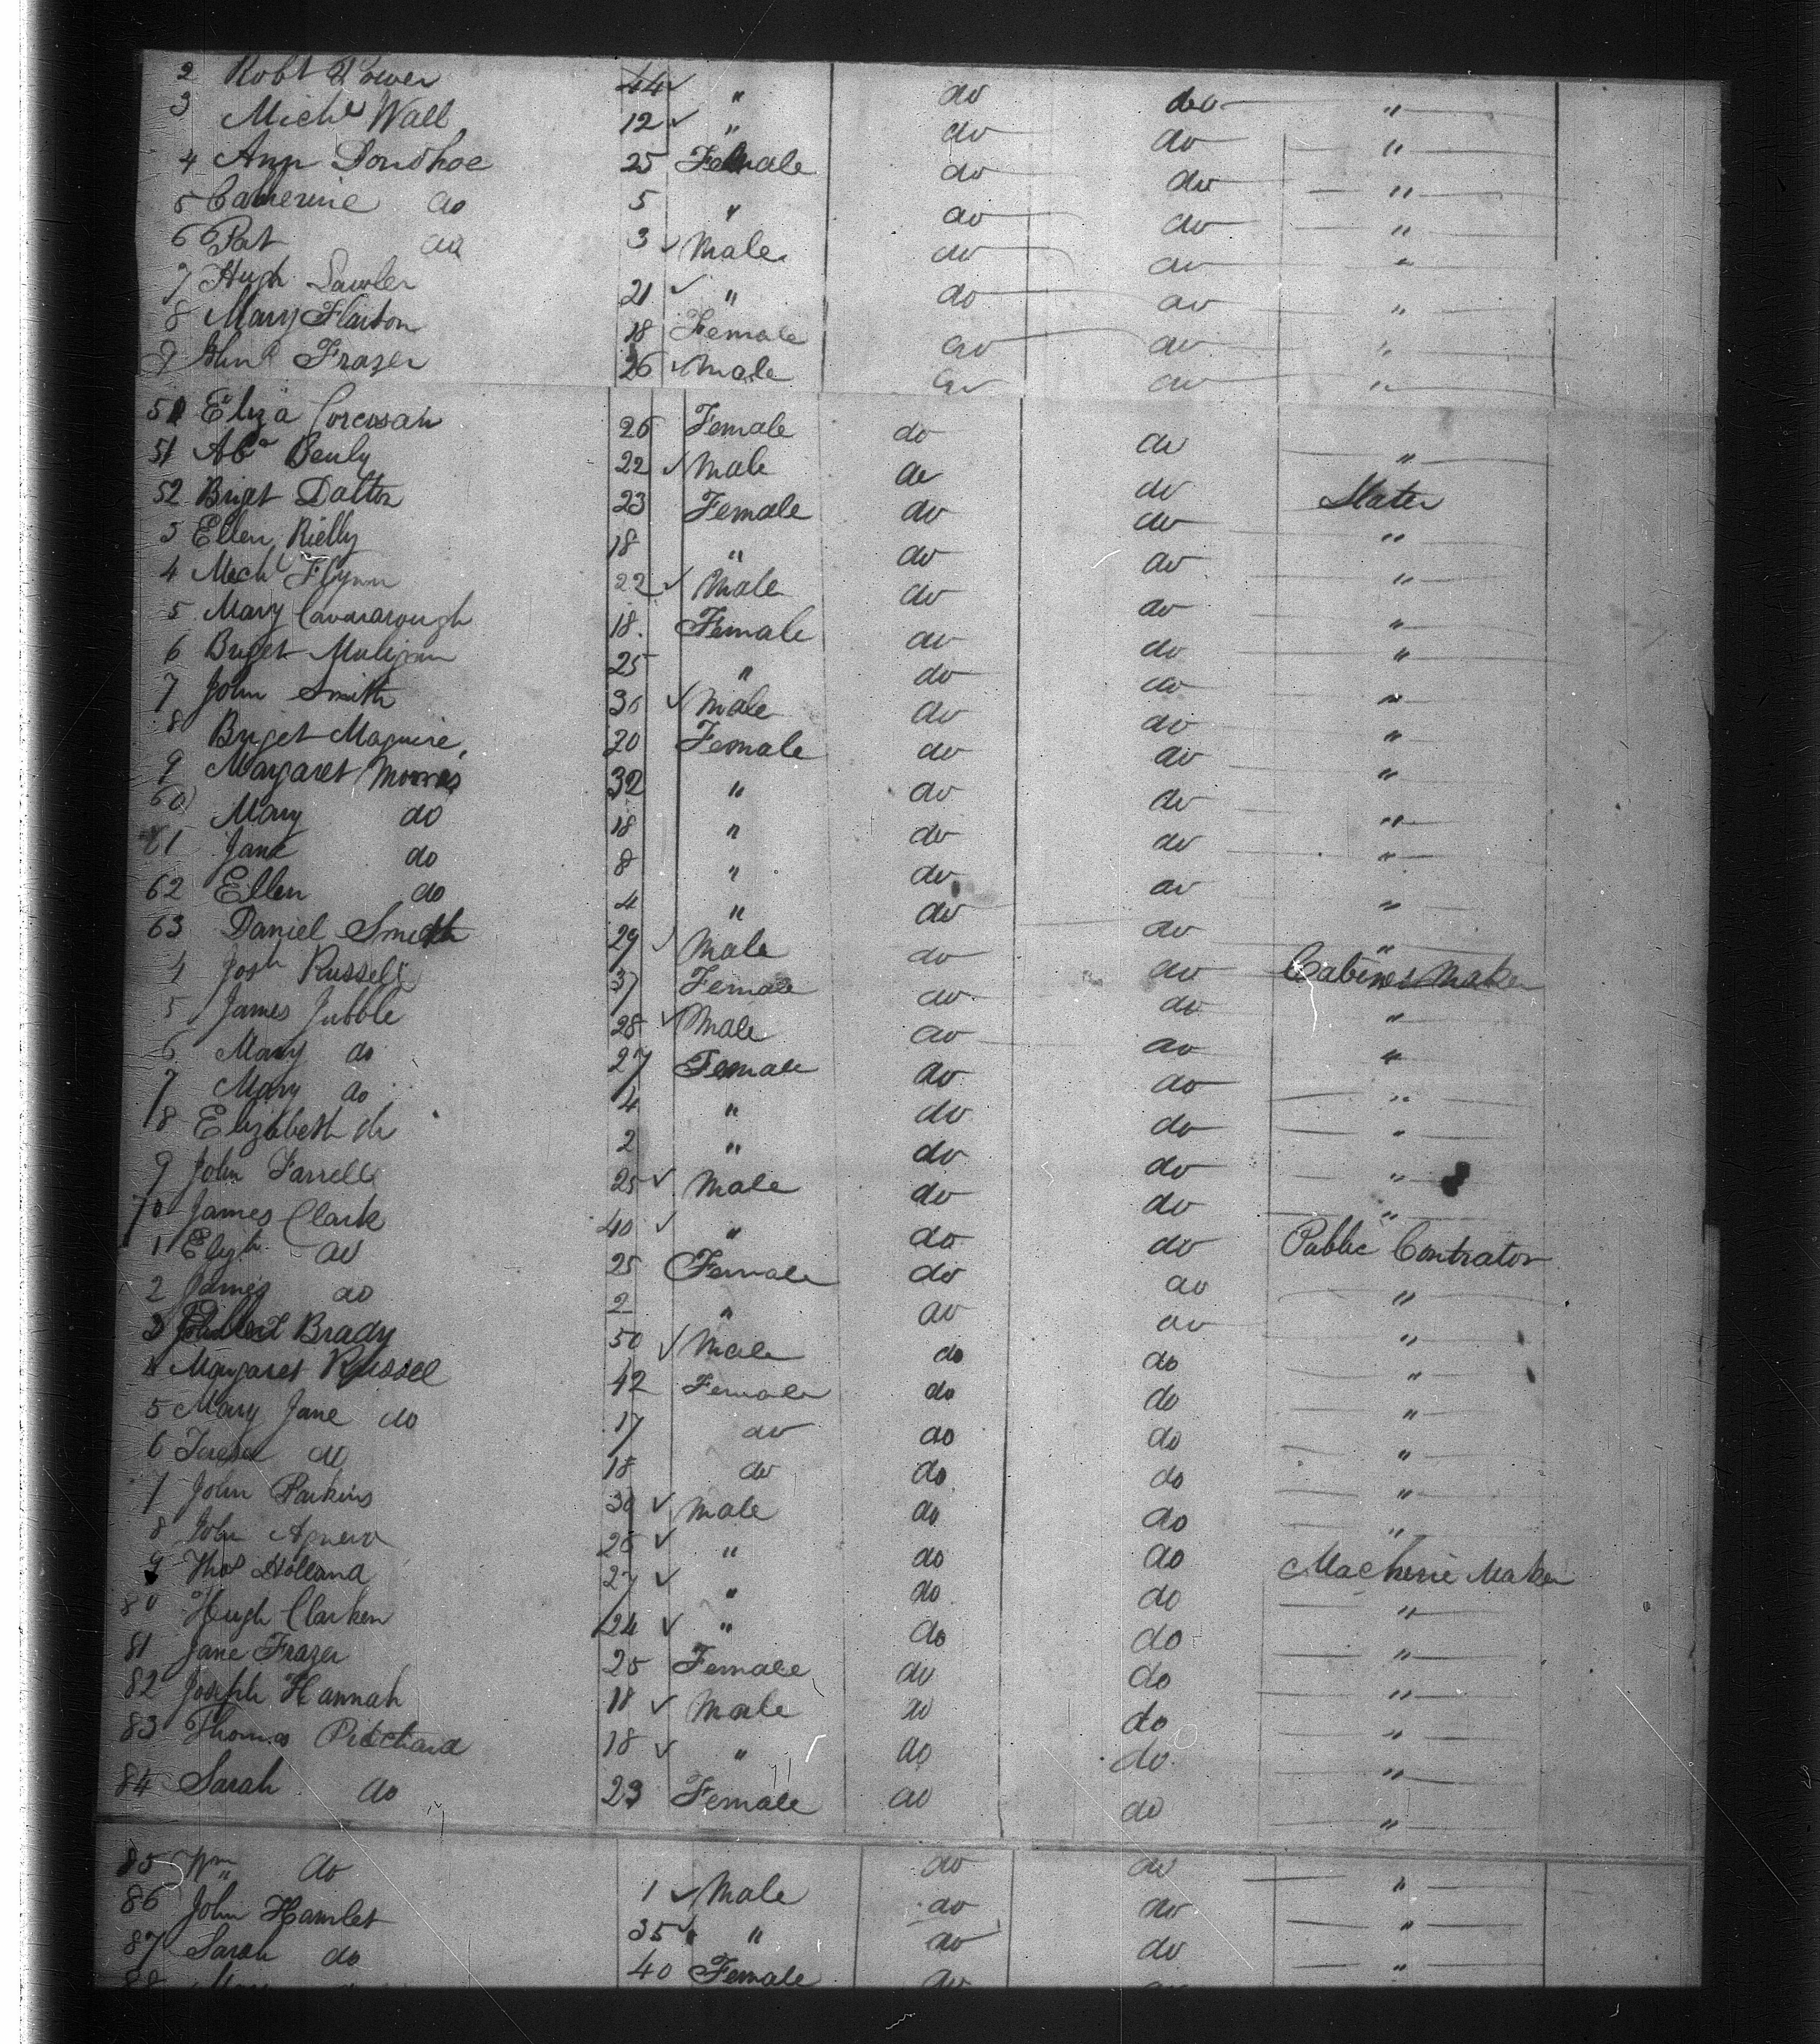 2 Robt Power 44 " do do "
3 Michl Wall 12 " do do "
4 Ann Donohoe 25 Female do do "
5 Catherine do 5 " do do "
6 Pat do 3 Male do do "
7 Hugh Lawler 21 " do do "
8 Mary 18 Female do do "
9 Frazer 26 Male do do "
50 Eliza Corcoran 26 Female do do "
51 22 Male do do Slater
52 Briget Dalton 23 Female do do "
3 Ellen Rielly 18 " do do "
4 Mich Flynn 22 Male do do "
5 Mary Cavanarough 18 Female do do "
6 Briget Muligan 25 " do do "
7 John Smith 36 Male do do "
8 Briget Maguire 20 Female do do "
9 Margaret Morris 32 " do do "
60 Mary do 18 " do do "
61 Jane do 8 " do do "
62 Ellen do 4 " do do "
63 Daniel Smith 29 Male do do Cabinet Maker
4 Josh Russell 37 Female do do "
5 James Jubble 28 Male do do "
6 Mary do 27 Female do do "
7 Mary do 4 " do do "
8 Elizabeth do 2 " do do "
9 John Farrell 25 Male do do "
70 James Clark 40 " do do Public Contrator
1 Elizh do 25 Female do do "
2 James do 2 " do do "
3 Brady 50 Male do do "
4 Margaret Russel 42 Female do do "
5 Mary Jane do 17 do do do "
6 Teresa do 18 do do do "
7 John Parkins 30 Male do do "
8 John Agnew 26 " do do Macherie Maker
9 Thos Holland 27 " do do "
80 Hugh Clarken 24 " do do "
81 Jane Frazer 25 Female do do "
82 Joseph Hannah 18 Male do do "
83 Thomas Pritchard 18 " do do "
84 Sarah do 23 Female do do "
85 Wm do 1 Male do do "
86 John Hamlet 35 " do do "
87 Sarah do 40 Female do do "
88